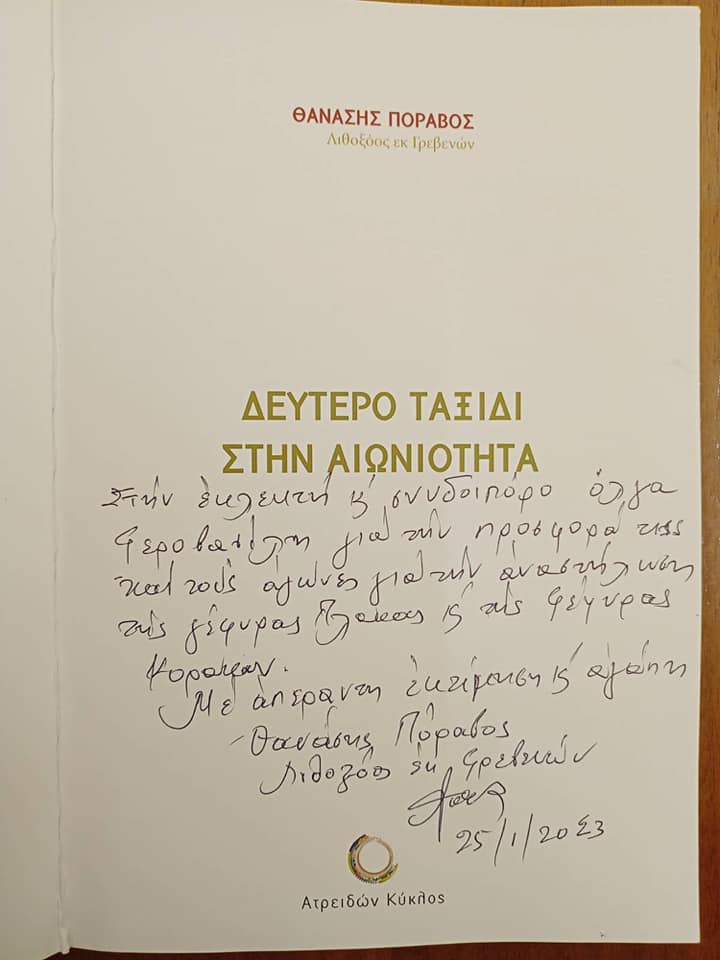 ΘΑΝΑΣΗΣ ΠΟΡΑΒΟΣ
Λιθοξόος εκ Γρεβενών
ΔΕΥΤΕΡΟ ΤΑΞΙΔΙ
ΣΤΗΝ ΑΙΩΝΙΟΤΗΤΑ
Στήν ἐκλεκτή κ' συνδοιπόρο Ὄλγα
Γεροβασίλη γιά τήν προσφορά της
καί τούς ἀγώνες γιά τήν ἀναστήλωση
τῆς γέφυρας Πλακας κ' τῆς Γέφυρας
Κορακου.
Μέ ἀπέραντη ἐκτίμηση κ' ἀγάπη
Θανάσης Πόραβος
Λιθοξόος ἐκ Γρεβενών
25/1/2023
Ατρειδών Κύκλος